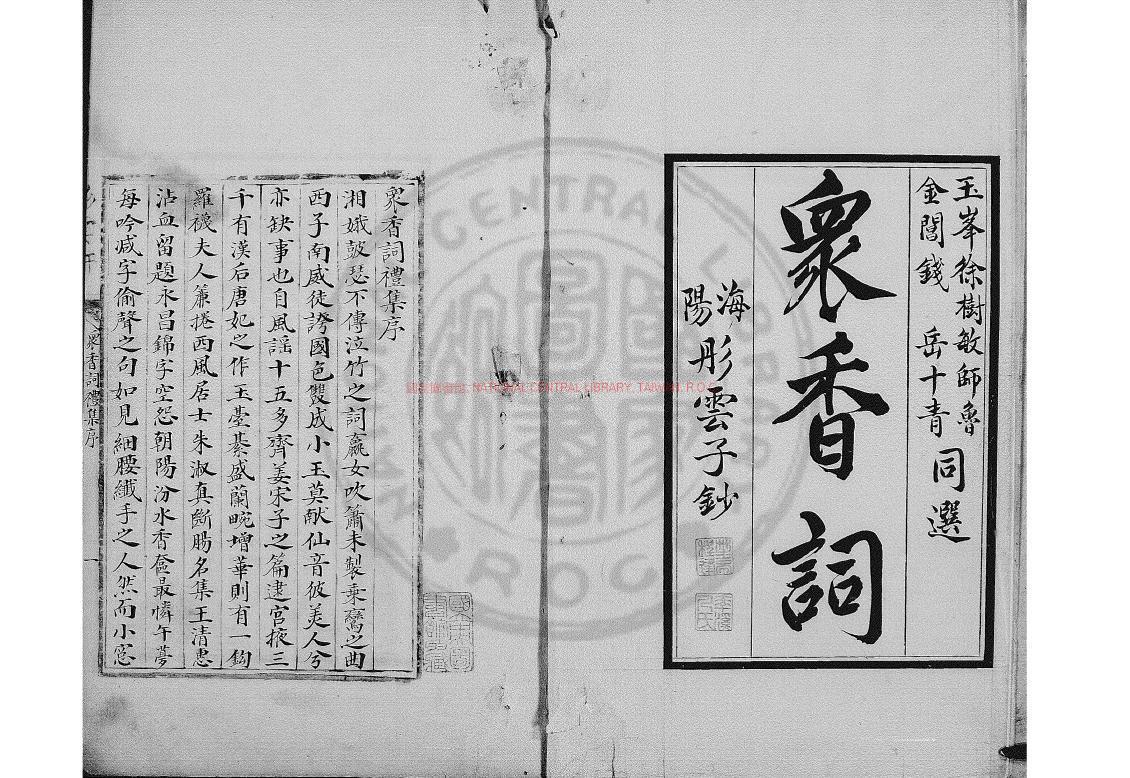 玉峯徐樹敏師魯
金閶錢岳十青
同選
衆香詞
海陽
彤雲子鈔
衆香詞禮集序
湘娥鼓瑟不傳泣竹之詞嬴女吹簫未製乗鸞之曲
西子南威徒誇國色雙成小玉莫献仙音彼美人兮
亦缺事也自風謡十五多齊姜宋子之篇逮宫掖三
千有漢后唐妃之作玉臺綦盛蘭畹增華則有一鉤
羅襪夫人簾捲西風居士朱淑真斷腸名集王清惠
沾血留題永昌錦字空怨朝陽汾水香奩最憐午夢
每吟减字偷聲之句如見細腰纖手之人然而小窓
衆香詞禮集序
一
NATIONAL CENTRAL LIBRARY, TAIWAN, R.O.C
CENTRAL
ROC